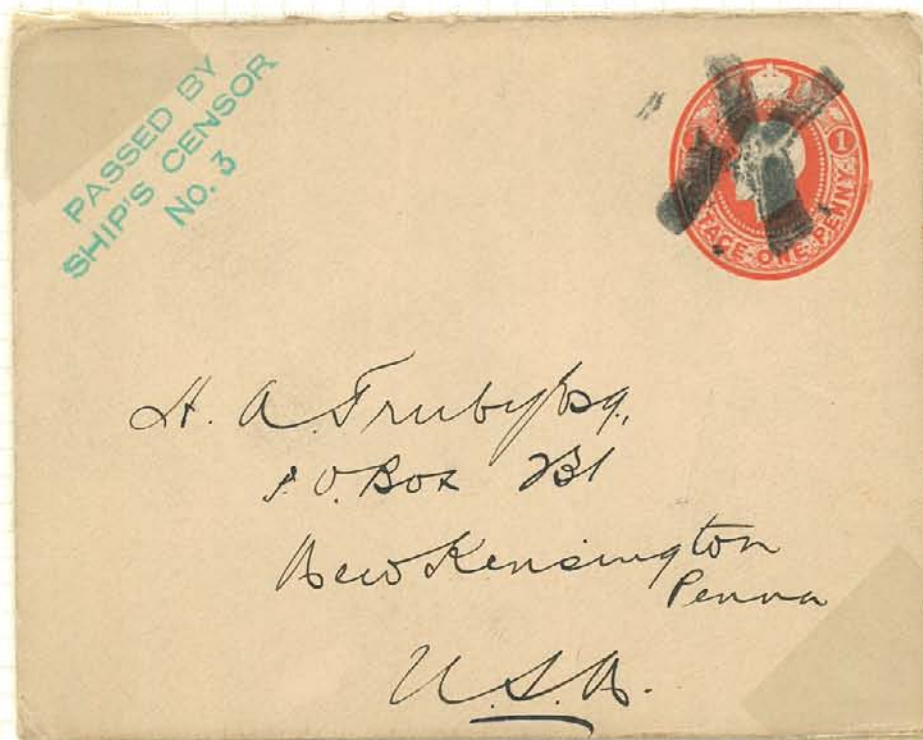 PASSED BY
SHIP'S CENSOR
No. 3
1
POSTAGE·ONE·PENNY
H. A. Truby Esq.,
P. O. Box 231
New Kensington
Penna
U.S.A.